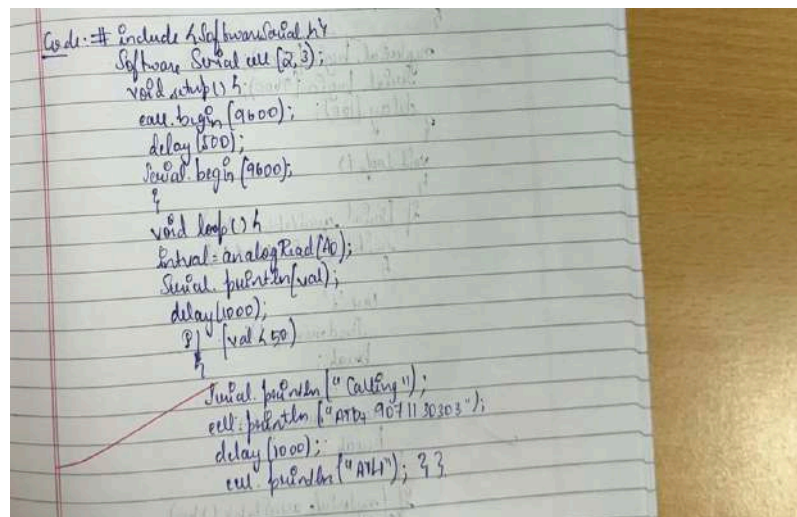 Code:- # include <SoftwareSerial.h>
Software Serial cell (2,3);
void setup() {
cell.begin (9600);
delay (500);
Serial.begin (9600);
}
void loop() {
int val = analogRead (A0);
Serial.println (val);
delay (1000);
if (val < 50)
{
Serial.println ("Calling");
cell.println ("ATD+ 9071130303");
delay (1000);
cell.println ("ATH"); } }